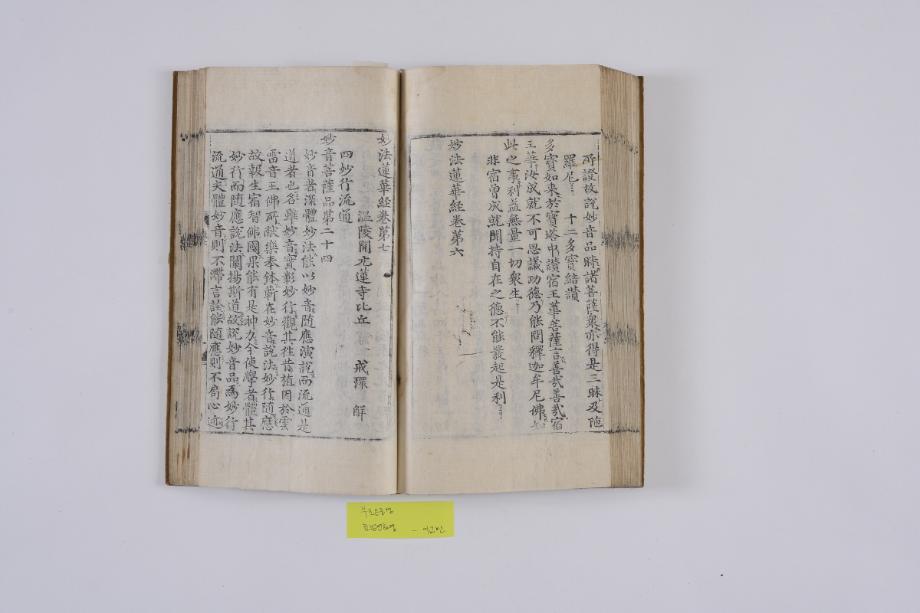 所證故說妙音品時諸菩薩衆亦得是三昧及陁
羅尼 十二多寶結讚
多寶如來於寶塔中讚宿王華菩薩言善哉善哉宿
王華汝成就不可思議功德乃能問釋迦牟尼佛如
此之事利益無量一切衆生
非宿曾成就聞持自在之德不能發起是利
妙法蓮華經卷第六
妙法蓮華經卷第七
溫陵開元蓮寺比丘 戒環 解
四妙行流通
妙音菩薩品第二十四
妙音者深體妙法能以妙音隨應演說而流通是
道者也名雖妙音實彰妙行觀其往昔植因於雲
雷音王佛所獻樂奉鉢蘄在妙音說法妙行隨應
故報生宿智佛國果能有是神力今使學者體其
妙行而隨應說法闡揚斯道故說妙音品爲妙行
流通夫體妙音則不滯言詮能隨應則不局心迹